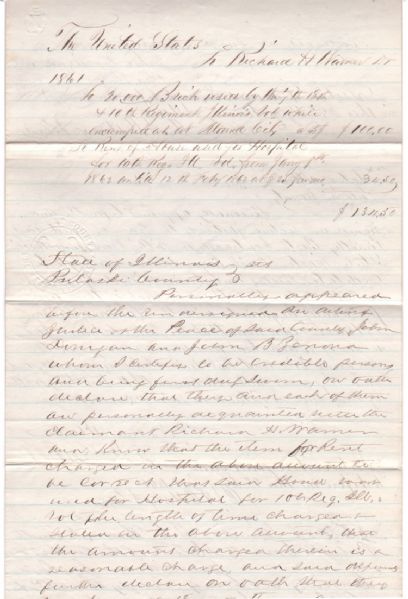 The United States
To Richard H Warner Dr
1861
To 20,000 Brick used by the 7th
& 10th Regiment Illinois Vol while
encamped at Mound City $ 100,00
To Rent of House used for Hospital
for 10th Regt Ill Vol from Jany 1st
1862 until 12th Feby 34.50
$ 134.50
State of Illinois
Pulaski County
Personally appeared
before the undersigned an acting
Justice of the Peace of said County, John
and John B
whom I certify to be credible persons
and being first duly sworn, on oath
declare, that they and each of them
are personally acquainted with the
claimant Richard H Warner
and know that the item for Rent
charged in the above account to
be correct that said House was
used for Hospital for 10th Reg. Ill.
Vol the length of time charged &
stated in the above account, that
the amount charged therein is a
reasonable charge, and said
further declare on oath that they